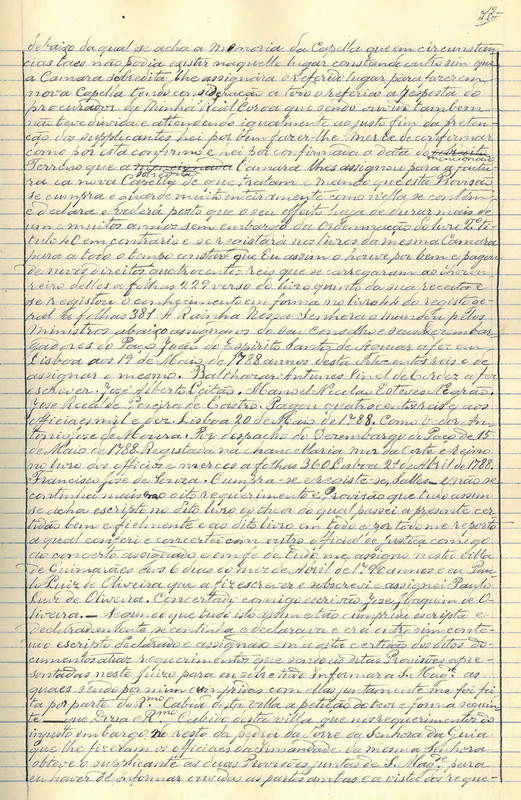 debaixo da qual se acha a Memoria da Capella que em circunstan
cias taes não podia existir naquelle lugar constando outro sim que
a Camara sobredita lhe assignára o referido lugar para fazerem
nova Capella tendo consideração a todo o referido a resposta do
procurador da Minha Real Coroa que sendo ouvido tambem
não teve duvida e attendendo igualmente ao justo fim da preten-
ção dos supplicantes hei por bem fazer-lhe Merce de confirmar
como por esta confirmo e hei por confirmada a data do
mencionado
Terreno que a Camara lhes assignou para a factu
sobredita
ra da nova Capella de que tratam e mando que esta Provisão
se cumpra e guarde muito inteiramente como nella se contém
e declara e valerá posto que o seu effeito haja de durar mais de
um e muitos annos sem embargo da Ordenação do livro 2º ti-
tulo 40 em contrario e se resistará nos livros da mesma Camara
para a todo o tempo constar que Eu assim o houve por bem e pagou
de novos direitos quatrocentos reis que se carregaram ao thezou-
reiro delles a folhas 229 verso do livro quinto da sua receita e
se registou o conhecimento em forma no livro 44 do registo ge-
ral a folhas 381. A Rainha Nossa Senhora o mandou pelos
Ministros abaixo assignados do seu Conselho e seus Desembar-
gadores do Paço João do Espirito Santo de Aguiar a fez em
Lisboa aos 19 de Maio de 1788 annos desta
assignar o mesmo. Balthazar Antunes Pinel de Cordes a fez
escrever. José Alberto Leitão. Manoel Nicolau Esteves Negrão.
José de Pereira de Castro. Pagou quatrocentos reis e aos
officiaes mil e Lisboa 20 de Maio de 1788. Como V. dor An-
tonio José de Moura. Por despacho do Desembargo do Paço de 15
de Maio de 1788. Registada na chancellaria mor da Corte e reino
no livro dos officios e merces a folhas 360 Lisboa 21 de Abril de 1788.
Francisco José de Souza. Cumpra-se e registe-se, Salles - e não se
continha mais no dito requerimento e Provisão que tudo assim
se acha escripto no dito livro do theor do qual passei a presente cer-
tidão bem e fielmente e ao dito livro em todo e por todo me reporto
a qual conferi e concertei com outro official de justiça comigo
ao concerto assignado e em fé de tudo me assigno nesta Villa
de Guimarães aos 6 dias do mez de Abril de 1790 annos e eu Pau-
lo Luiz de Oliveira que a fiz escrever e subscrevi e assignei Paulo
Luiz de Oliveira. Concertado comigo escrivão José Joaquim de O-
liveira. - Segundo que tudo isto assim e tão cumprida escripta e
declaradamente se continha e declarava e era outro sim conte-
udo escripto declarado e assignado em a dita certidão dos ditos do-
cumentos atraz requerimentos que são as ditas Provisões apre-
sentadas neste Juizo para eu sobre tudo informar a S. Magde. as
quaes sendo por mim cumpridas com ellas juntamente me foi fei-
ta por parte do Rmo. Cabido desta villa a petição do teor e forma seguin
te - Diz o Rmo Cabido desta villa que nos requerimentos do
injusto embargo no resto da pedra da Torre da Senhora da Guia
que lhe fizeram os officiaes da Irmandade da mesma Senhora
obteve o supplicante as duas Provisões juntas de S. Magde. para
eu haver de informar ouvidas as partes ambas e a vista dos reque-